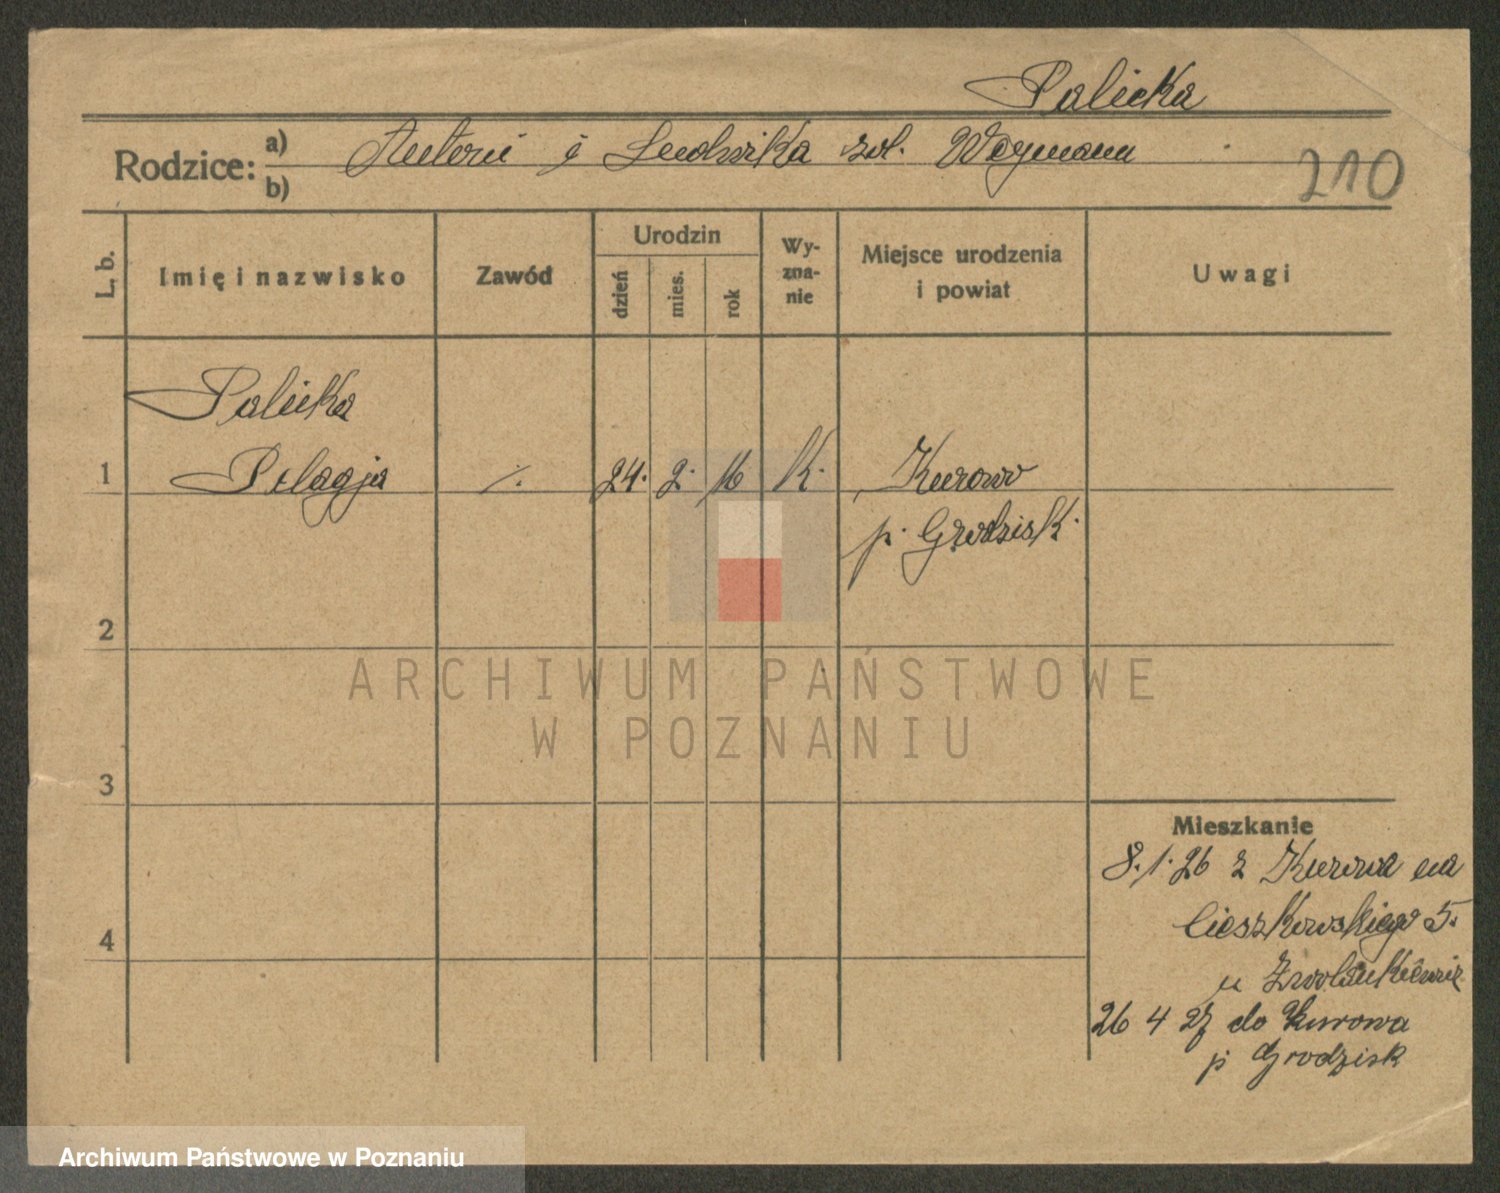 Palicka
Rodzice: a) Antoni i Ludwika zd. Weymann
b)
210
L. b.
Imię i nazwisko
Zawód
Urodzin
dzień
mies.
rok
Wy-
zna-
nie
Miejsce urodzenia
i powiat
Uwagi
Palicka
1 Pelagja ./. 24. 2. 16 k. Kurowo
p. Grodzisk.
2
3
4
Mieszkanie
8. 1. 26 z Kurowa na
Cieszkowskiego 5.
u
26 4 27 do Kurowa
p Grodzisk
ARCHIWUM PAŃSTWOWE
W POZNANIU
Archiwum Państwowe w Poznaniu